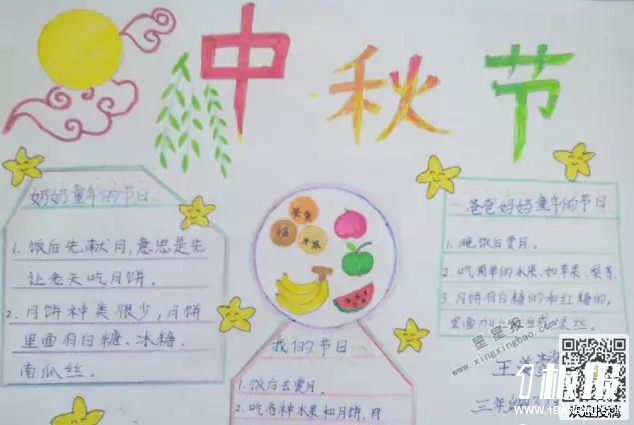 中秋节
奶奶童年的节日
1. 饭后先献月,意思是先
让老天吃月饼。
2. 月饼种类很少,月饼
里面有白糖、冰糖、
南瓜丝。
我们的节日
1. 饭后去赏月。
2. 吃各种水果和月饼,月
爸爸妈妈童年的节日
1. 晚饭后赏月。
2. 吃简单的水果,如苹果、梨等
3. 月饼有白糖的和红糖的,
里面
丝。
王
三年级
星星报
www.xingxingbao.com
板报